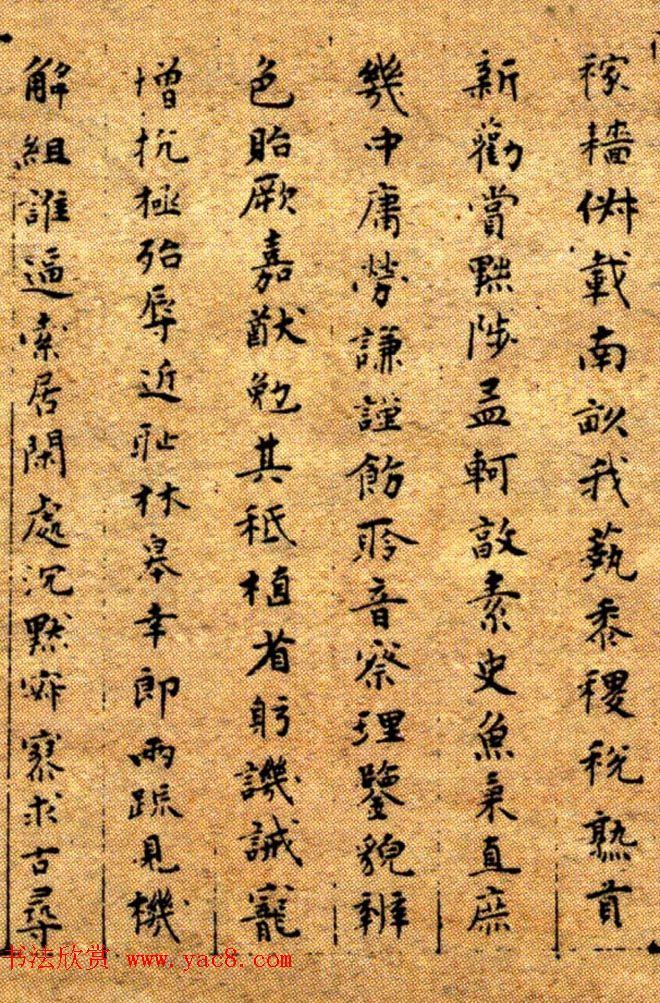 稼穡俶載南畝我藝黍稷稅熟貢
新勸賞黜陟孟軻敦素史魚秉直庶
幾中庸勞謙謹飭聆音察理鑒貌辨
色貽厥嘉猷勉其祗植省躬譏誡寵
增抗極殆辱近耻林皋幸即兩疏見機
解組誰逼索居閑處沉默寂寥求古尋
书法欣赏 www.yac8.com